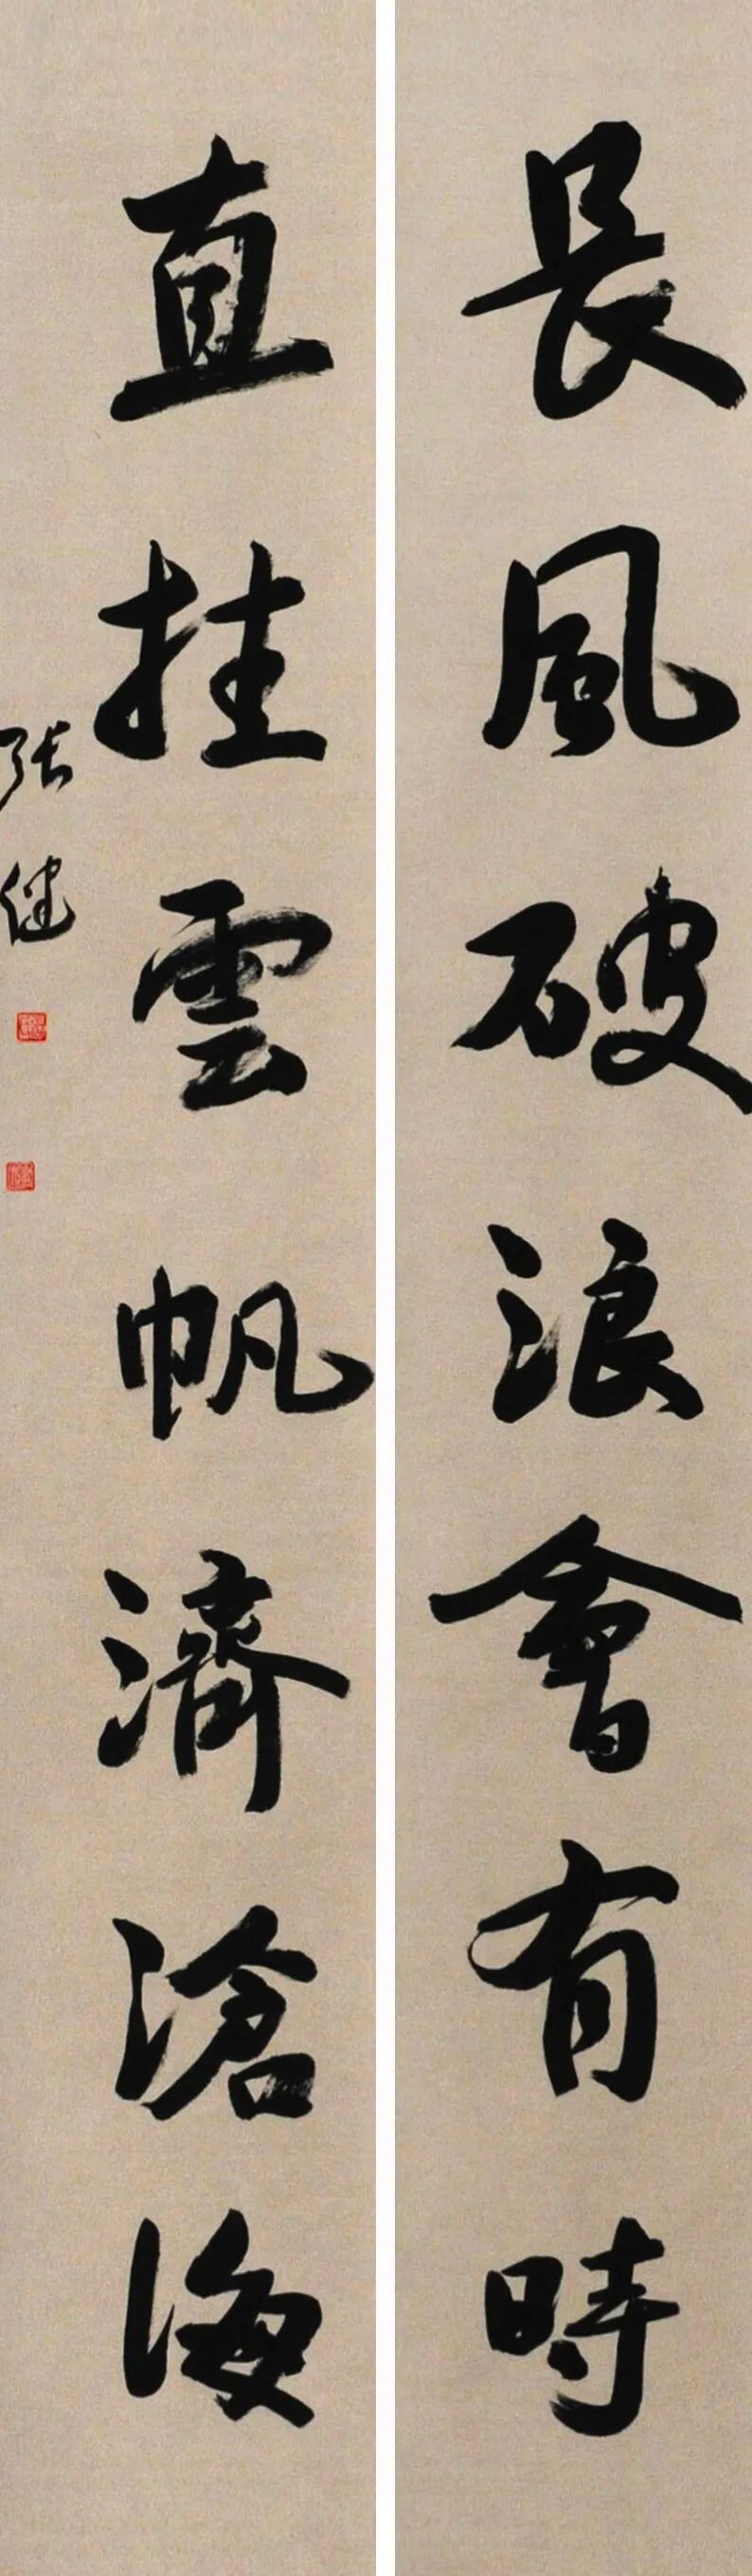 長風破浪會有時
直挂雲帆濟滄海
張健